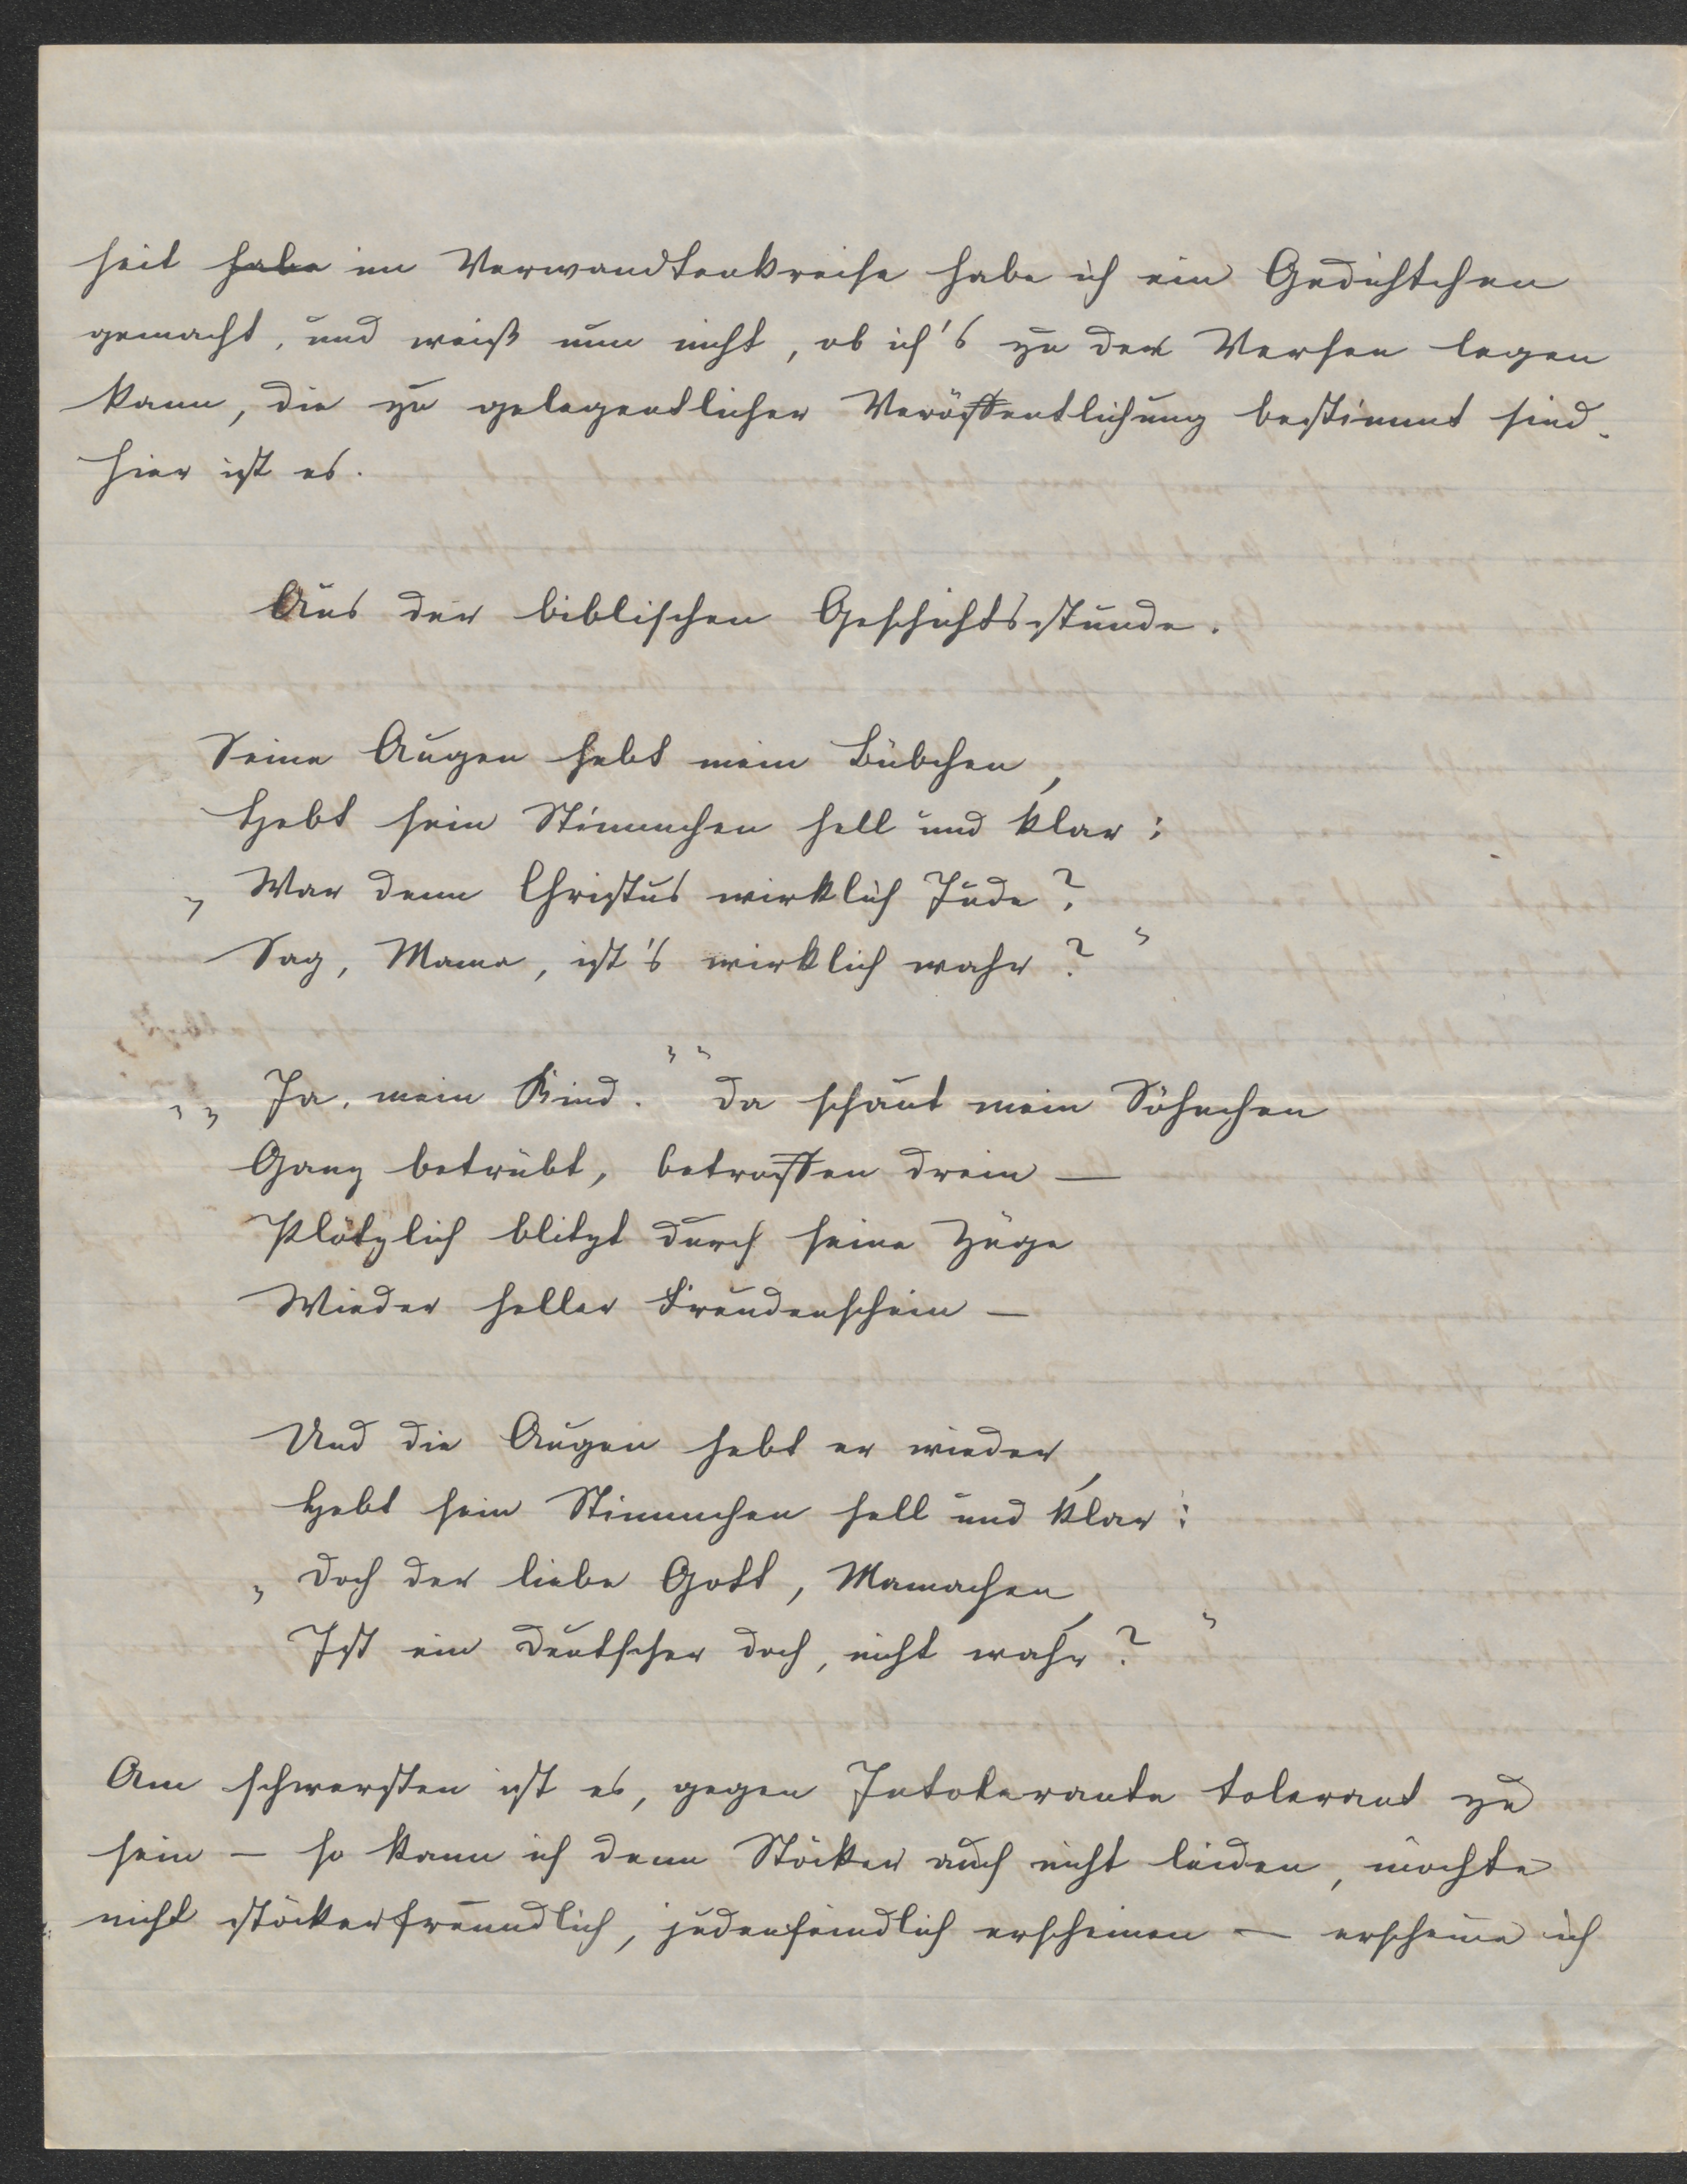 heit habe im Verwandtenkreise habe ich ein Gedichtchen
gemacht, und weiß nun nicht, ob ich's zu den Versen legen
kann, die zu gelegentlicher Veröffentlichung bestimmt sind.
Hier ist es.
Aus der biblischen Geschichtsstunde.
Seine Augen hebt mein Bübchen,
Hebt sein Stimmchen hell und klar:
„War denn Christus wirklich Jude?
Sag, Mama, ist's wirklich wahr?"
„„Ja, mein Kind."" Da schaut mein Söhnchen
Ganz betrübt, betroffen drein —
Plötzlich blitzt durch seine Züge
Wieder heller Freudenschein —
Und die Augen hebt er wieder,
Hebt sein Stimmchen hell und klar:
„Doch der liebe Gott, Mamachen,
Ist ein Deutscher doch, nicht wahr?"
Am schwersten ist es, gegen Intolerante tolerant zu
sein — so kann ich denn Stöcker auch nicht leiden, möchte
nicht stöckerfreundlich, judenfeindlich erscheinen — erscheine ich